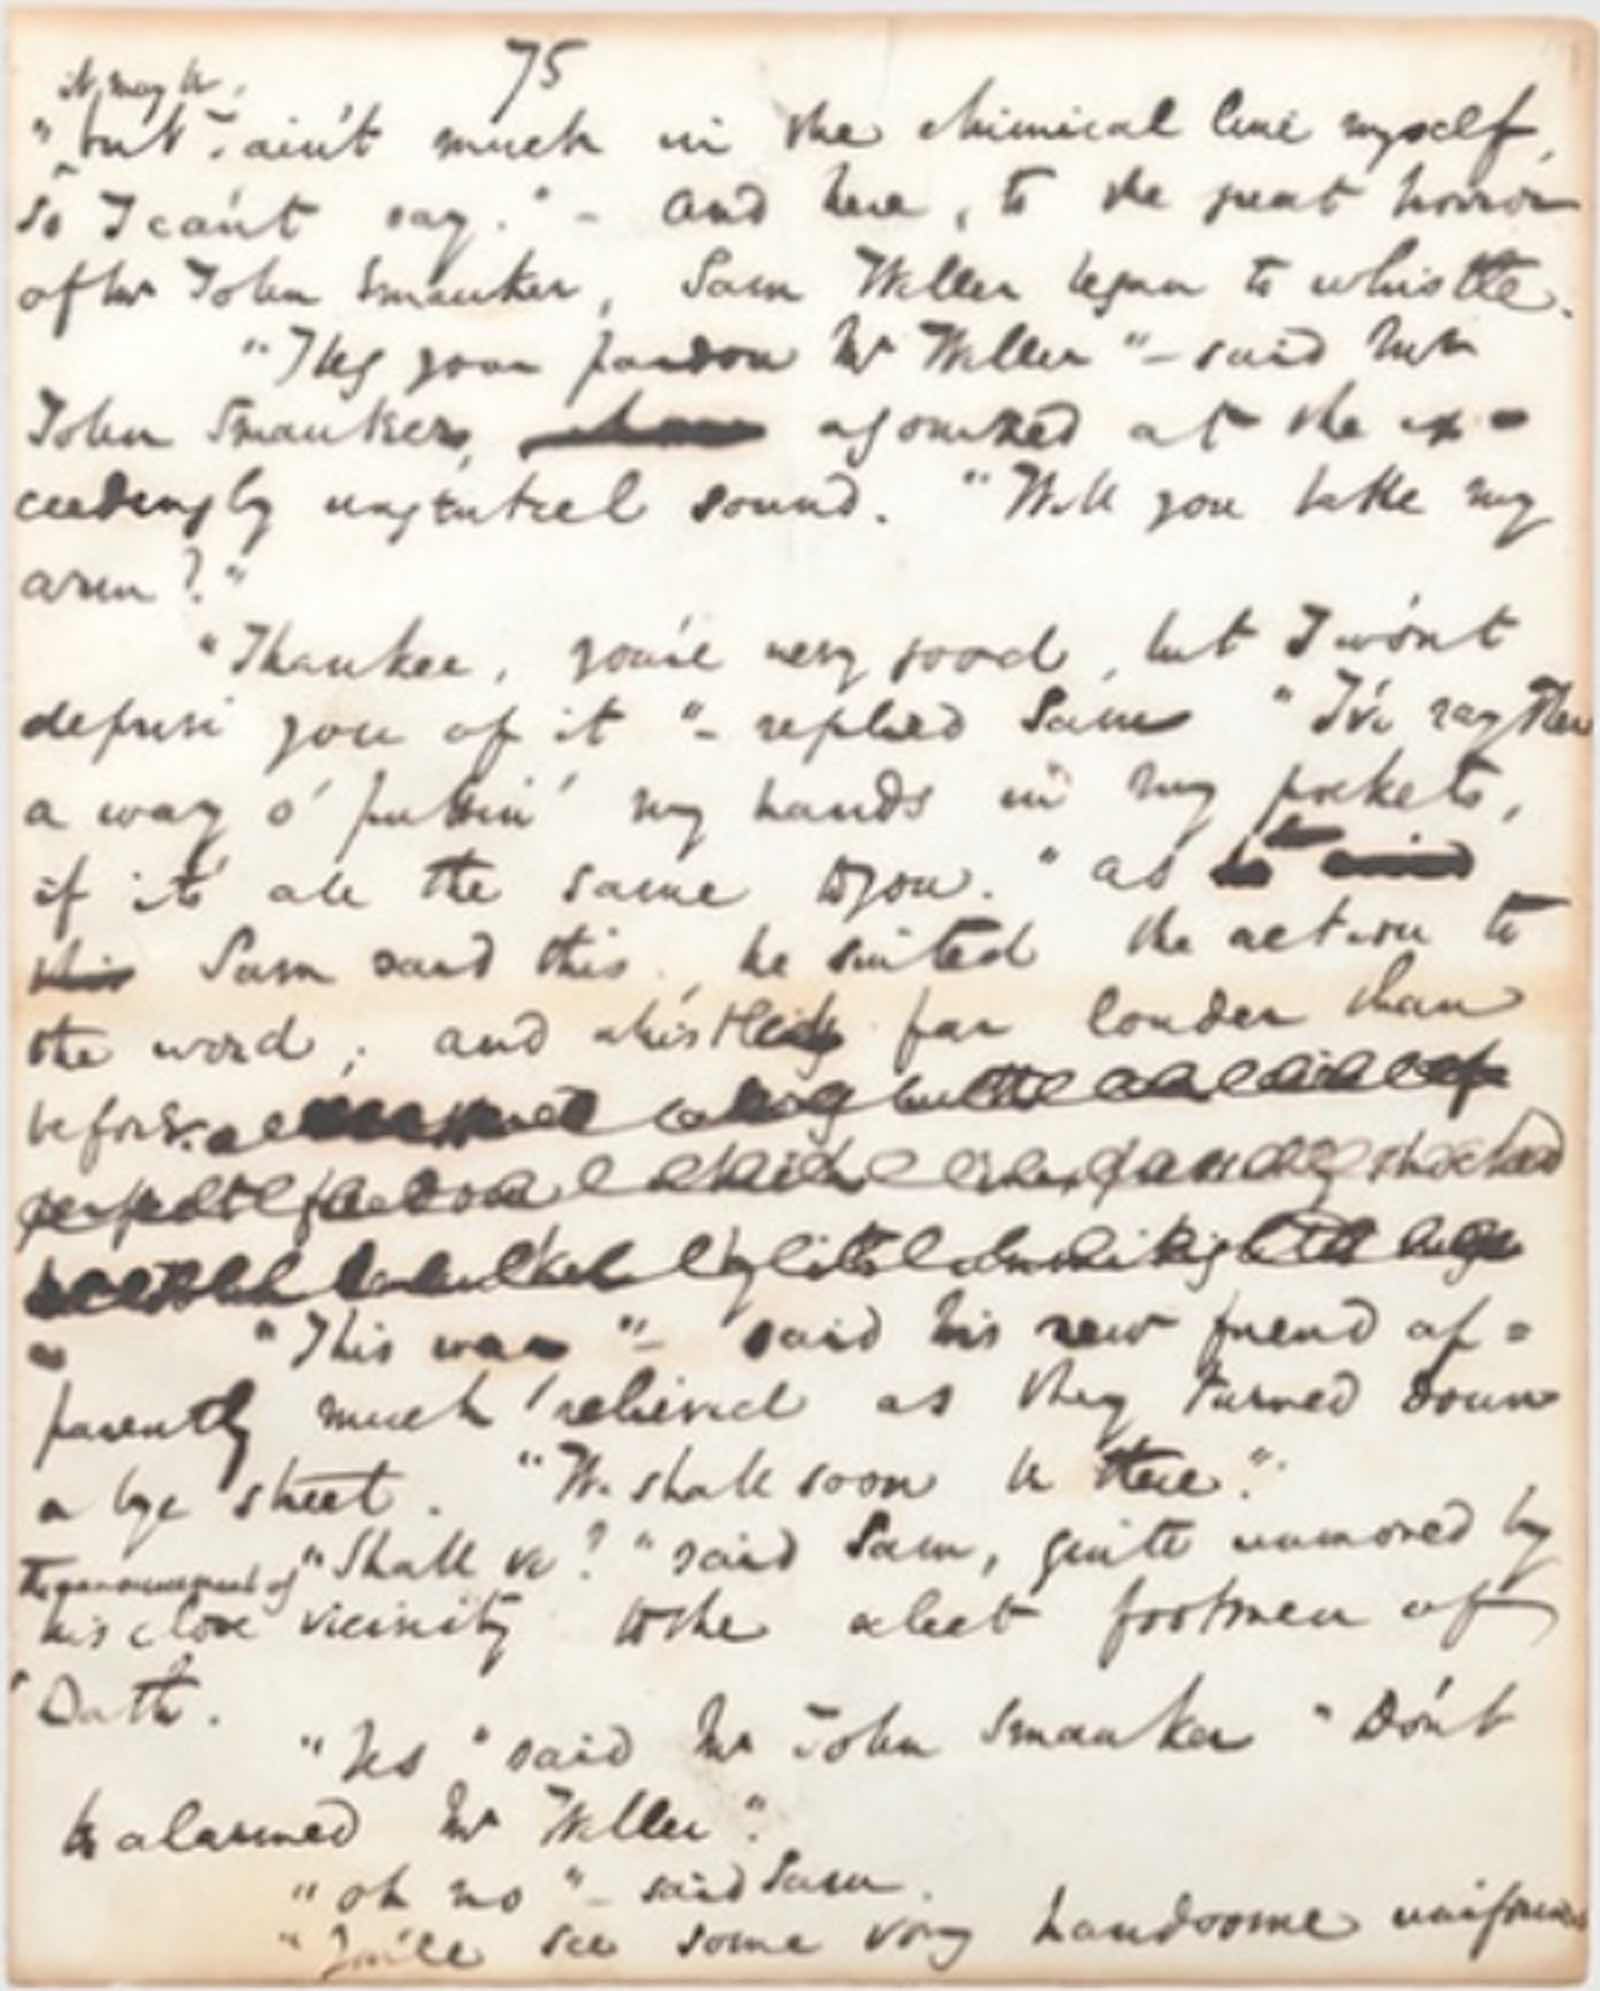 75
it may be,
"but ain't much in the chimical line myself,
so I can't say." - and here, to the great horror
of Mr John Smauker, Sam Weller began to whistle.
"I beg your pardon Mr Weller" - said Mr
John Smauker, agonized at the ex=
ceedingly ungenteel sound. "Will you take my
arm?"
"Thankee, you're very good, but I won't
deprive you of it" - replied Sam "I've rayther
a way o' puttin' my hands in my pockets,
if it's all the same to you." as
this Sam said this, he suited the action to
the word; and whistled far louder than
before.
shocked
"This way" - said his new friend ap=
parently much relieved as they turned down
a bye street. "We shall soon be there."
"Shall ve?" said Sam, quite unmoved by
the announcement of
his close vicinity to the select footmen of
Bath.
"Yes" said Mr John Smauker "Don't
be alarmed Mr Weller."
"oh no" - said Sam.
"You'll see some very handsome uniforms